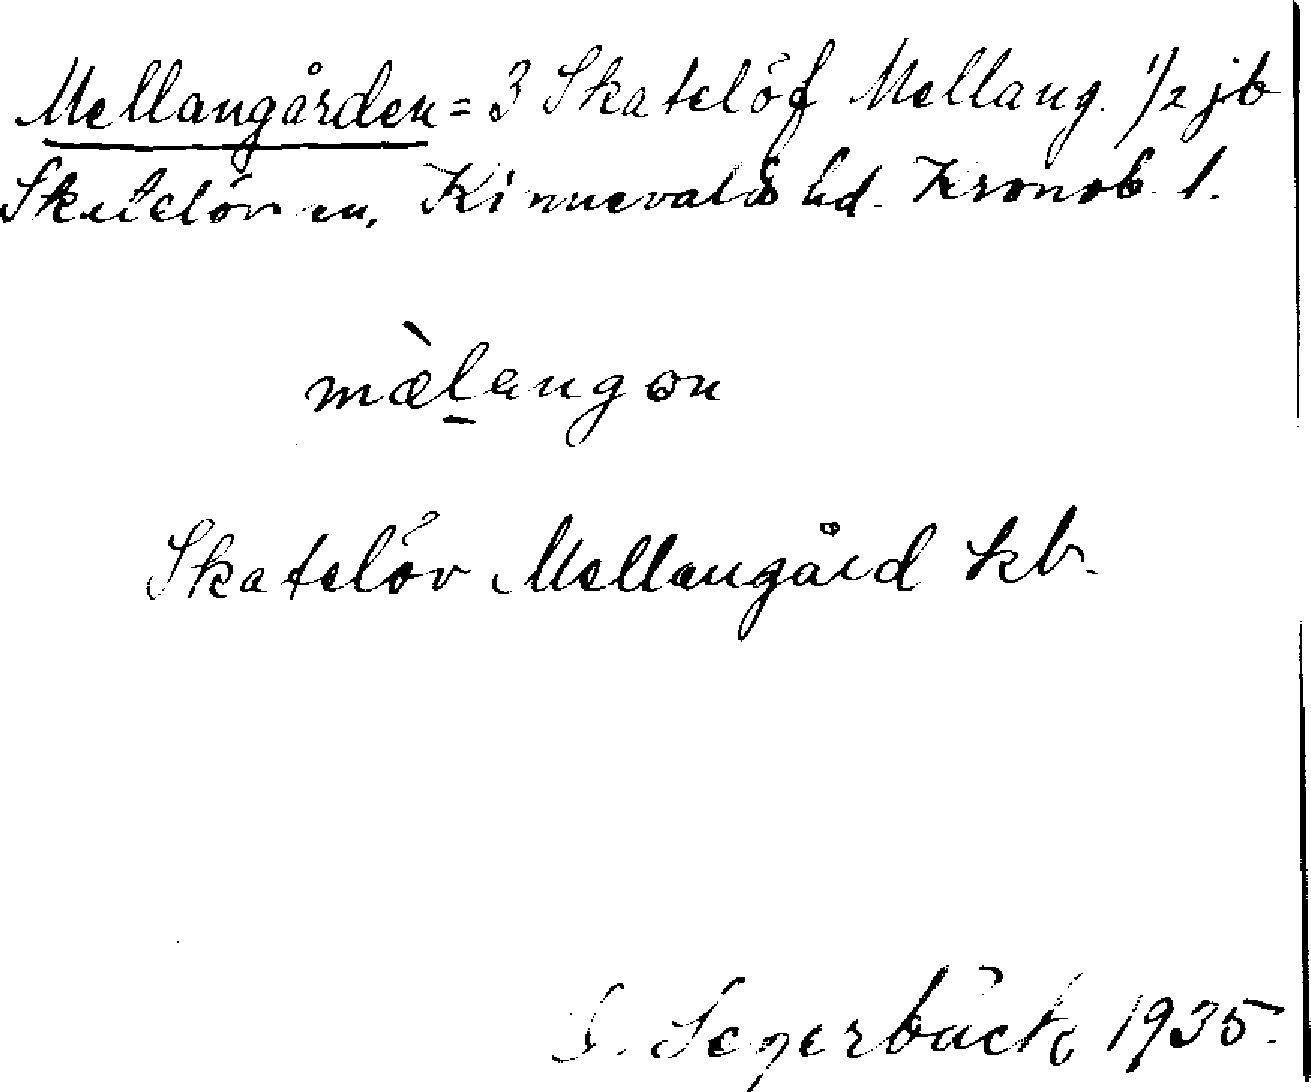 Mellangården = 3 Skatelöf Mellang. 1/2 jb
Skatelöv sn, Kinnevalds hd. Kronob. l.
mæ̀l̠angɷn
Skatelöv Mellangård kb.
S. Segerbäck 1935.